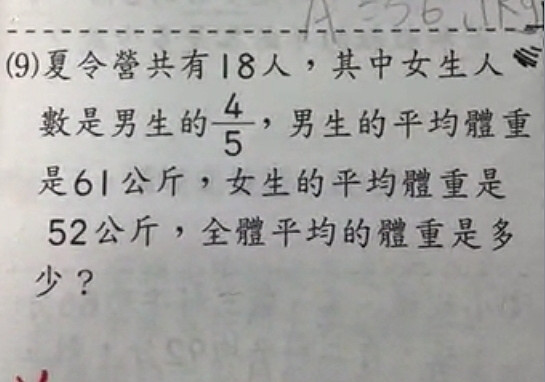 (9)夏令營共有18人，其中女生人
數是男生的4/5，男生的平均體重
是61公斤，女生的平均體重是
52公斤，全體平均的體重是多
少？